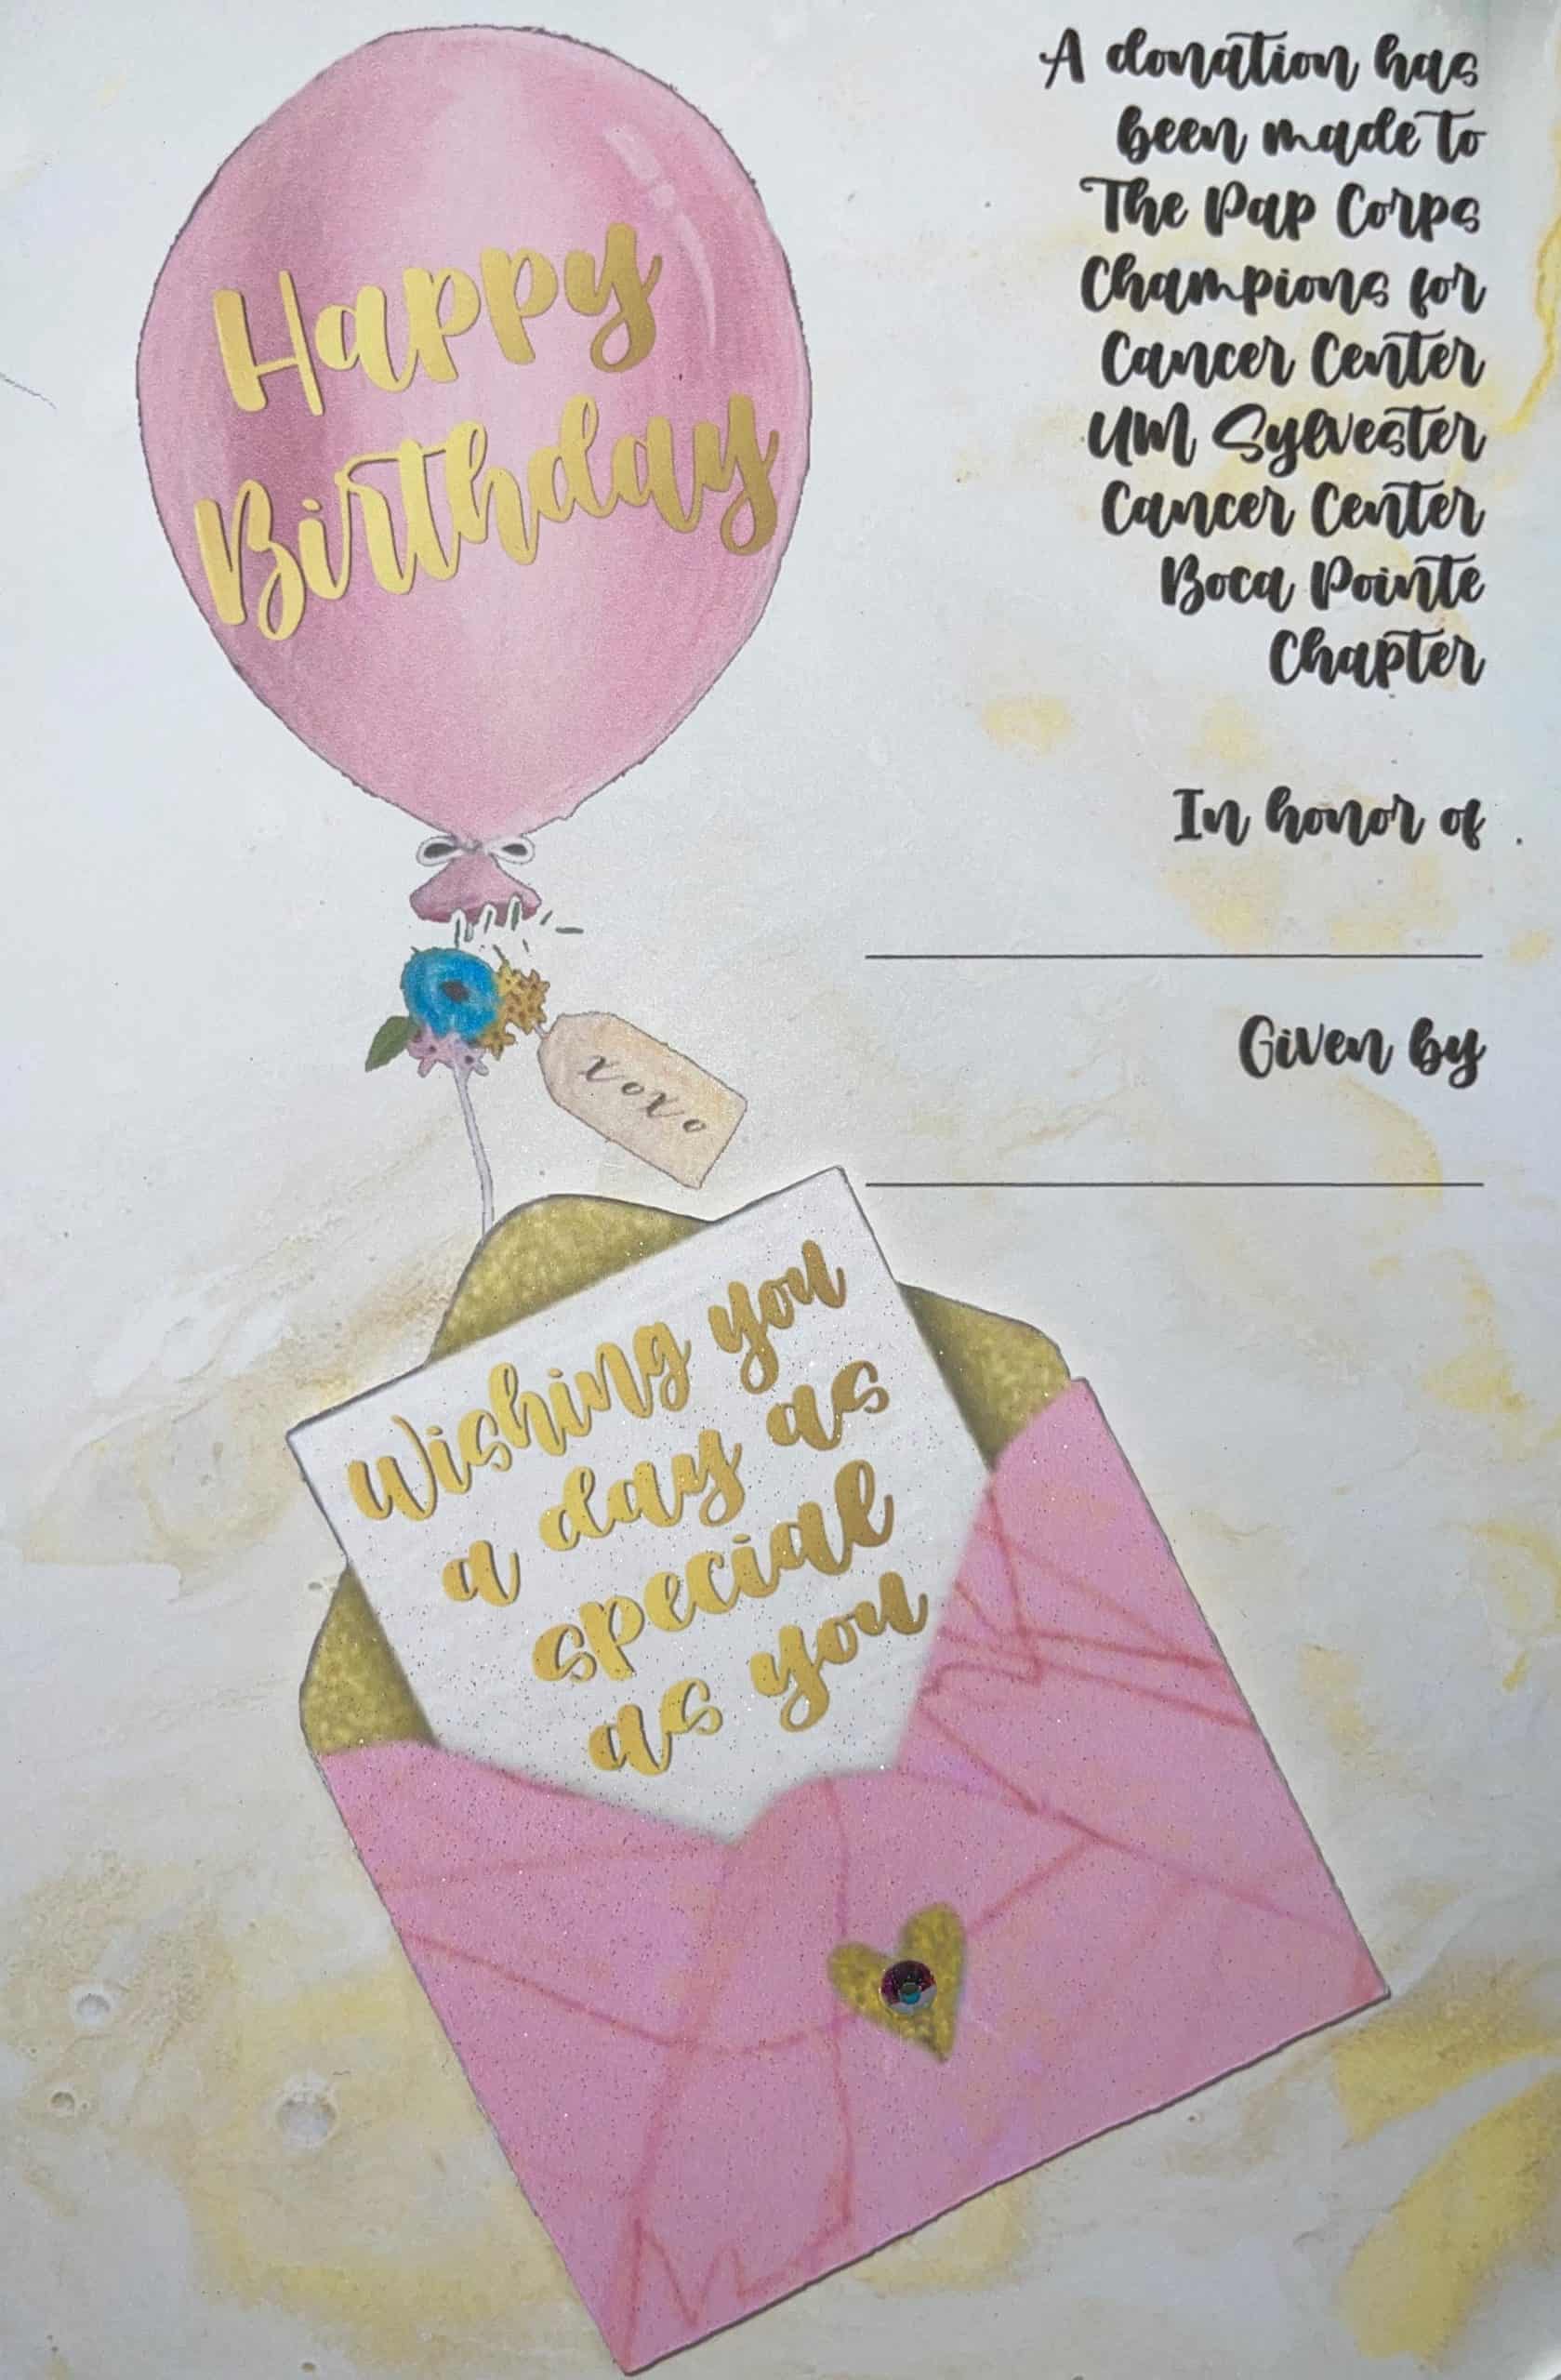 Happy
Birthday
A donation has
been made to
The Pap Corps
Champions for
Cancer Center
UM Sylvester
Cancer Center
Boca Pointe
Chapter
In honor of
Given by
xoxo
Wishing you
a day as
special
as you